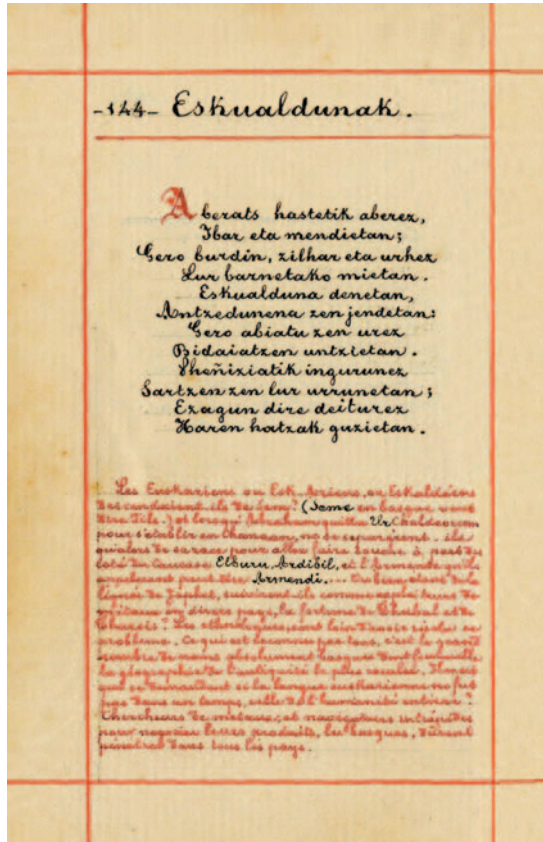 -144- Eskualdunak.
Aberats hastetik aberez,
Ibar eta mendietan;
Gero burdin, zilhar eta urhez
Lur barnetako mietan.
Eskualduna denetan,
Antzedunena zen jendetan:
Gero abiatu zen urez
Bidaiatzen untzietan.
Pheñiziatik ingurunez
Sartzen zen lur urrunetan;
Ezagun dire deiturez
Haren hatzak guzietan.
Les Euskariens ou Esk-Ariens, ou Eskaldéens
descendaient-ils de Sem? (Seme en basque veut
dire Fils.) et lorsqu'Abraham quitta Ur Chaldeorum
pour s'établir en Chanaan, ne se séparèrent-ils
qu'alors de sa race pour aller faire souche à part du
côté du Caucase Elburu, Ardibil, et l'Arménie qu'ils
appelèrent peut-être Armendi.... Ou bien étant de la
lignée de Japhet, suivirent-ils comme
en divers pays, la fortune de Thubal et de
Tharsis? Les ethnologues sont loin d'avoir résolu ce
problème. Ce qui est reconnu par tous, c'est le grand
nombre de noms absolument basques dont fourmille
la géographie de l'antiquité la plus reculée.
que se demandent si la langue euskarienne ne fut
pas dans un temps, celle de l'humanité entière?
Chercheurs de métaux, et navigateurs intrépides
pour négocier leurs produits, les basques, durent
pénétrer dans tous les pays.